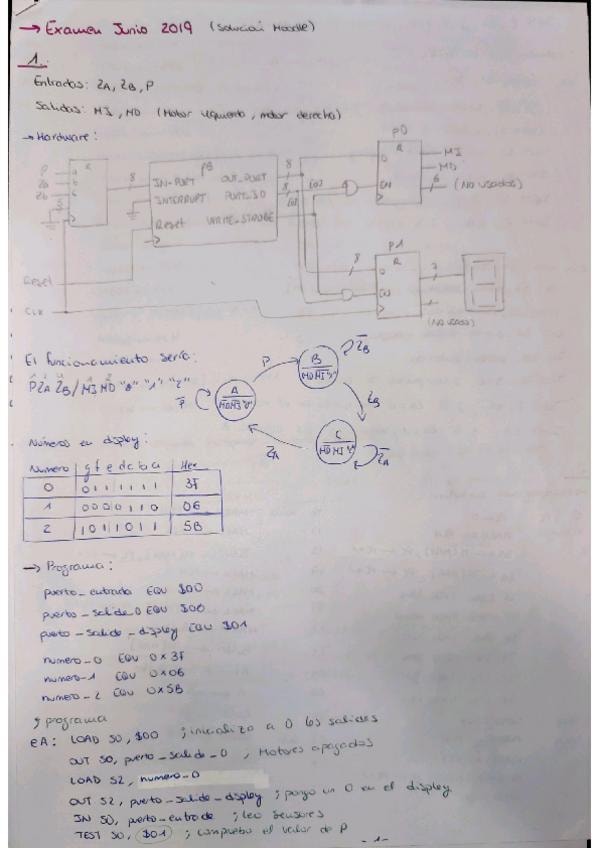 → Examen Junio 2019 (Solución Moodle)
1.
Entradas: ZA, ZB, P
Salidas: MI, MD (Motor izquierdo, motor derecha)
→ Hardware:
P0
R
D
EN
MI
MD
6
(NO USADOS)
P
Za
Zb
5
R
8
PB
IN-PORT
INTERRUPT
Reset
OUT_PORT
PORT_ID
WRITE_STROBE
8
8
(0)
P1
R
D
8
7
(NO USADO)
Reset
CLK
El funcionamiento sería:
PZA ZB/MI MD "0" "1" "2"
A
P
B
ZB
ZB
C
ZA
ZA
P
Números en display:
Numero | g f e d c b a | Hex
0 | 0 1 1 1 1 1 1 | 3F
1 | 0 0 0 0 1 1 0 | 06
2 | 1 0 1 1 0 1 1 | 5B
→ Programa:
puerto_entrada EQU $00
puerto_salida_0 EQU $00
puerto_salida_display EQU $01
numero_0 EQU 0x3F
numero_1 EQU 0x06
numero_2 EQU 0x5B
; programa
eA: LOAD S0, $00 ; inicializo a 0 las salidas
OUT S0, puerto_salida_0 ; Motores apagados
LOAD S2, numero_0
OUT S2, puerto_salida_display ; pongo un 0 en el display
IN S0, puerto_entrada ; leo sensores
TEST S0, $01 ; compruebo el valor de P
-1-